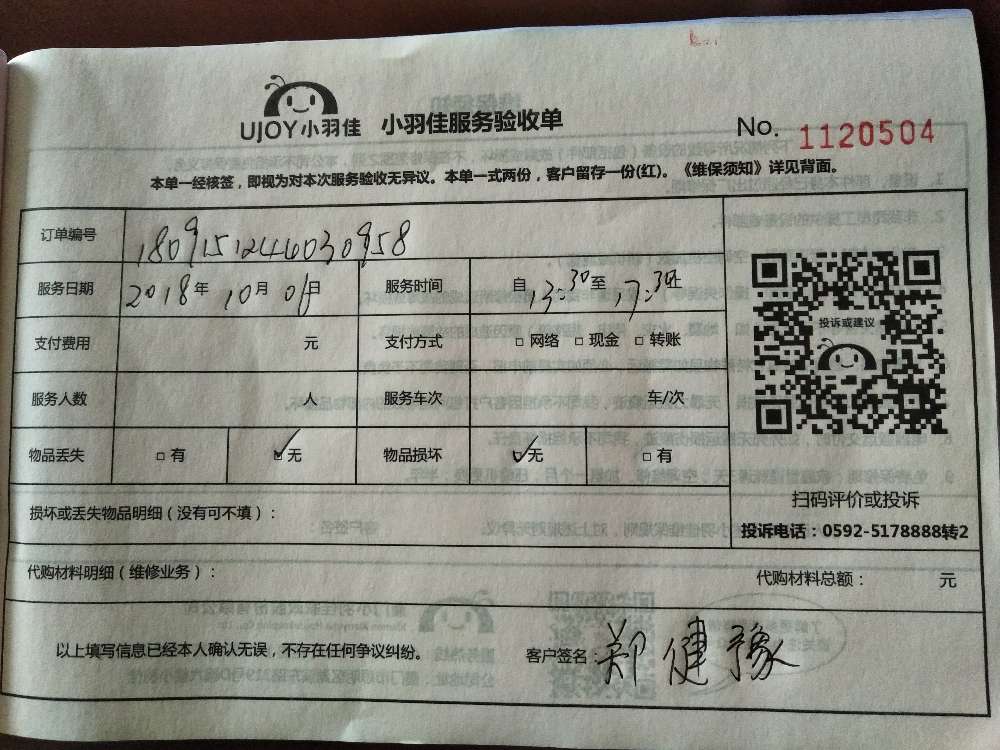 UJOY小羽佳 小羽佳服务验收单 No. 1120504
本单一经核签，即视为对本次服务验收无异议。本单一式两份，客户留存一份(红)。《维保须知》详见背面。
订单编号 1809151244030958
服务日期 2018年10月01日 服务时间 自13:30至17:30止
支付费用 元 支付方式 □ 网络 □ 现金 □ 转账
服务人数 人 服务车次 车/次
物品丢失 □ 有 ☑ 无 物品损坏 ☑ 无 □ 有
损坏或丢失物品明细（没有可不填）：
投诉或建议
扫码评价或投诉
投诉电话：0592-5178888转2
代购材料明细（维修业务）： 代购材料总额： 元
以上填写信息已经本人确认无误，不存在任何争议纠纷。 客户签名：郑健豫